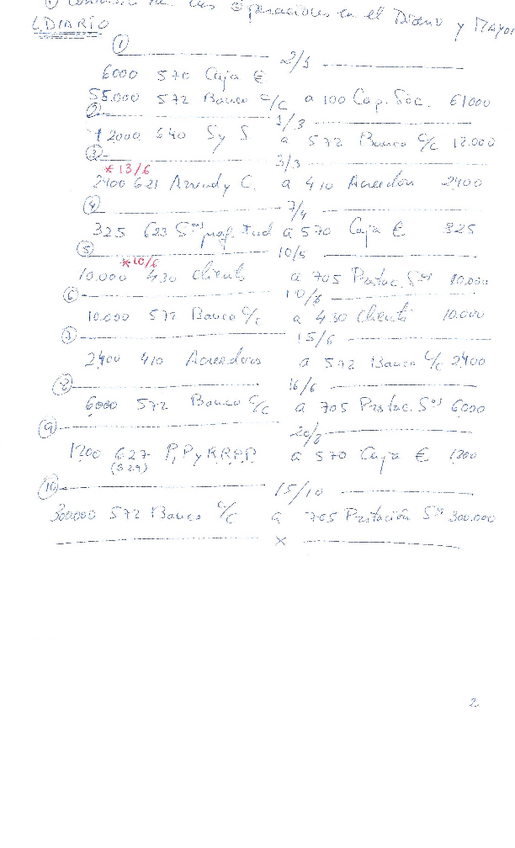 en las Operaciones en el Diario y Mayor
L. DIARIO
① 2/1
6000 570 Caja €
55.000 572 Banco c/c a 100 Cap. Soc. 61000
② 1/3
12000 640 S y S a 572 Banco c/c 12.000
③ 3/3
* 13/6
2400 621 Arrend y C. a 410 Acreedor 2400
④ 7/4
325 623 Sºs prof. Ind a 570 Caja € 325
⑤ 10/5
* 10/6
10.000 430 Clients a 705 Prestac. Sºs 10.000
⑥ 10/6
10.000 572 Banco c/c a 430 Clients 10.000
⑦ 15/6
2400 410 Acreedores a 572 Banco c/c 2400
⑧ 16/6
6000 572 Banco c/c a 705 Prestac. Sºs 6000
⑨ 20/8
1200 627 P, P y R.R.P.P. a 570 Caja € 1200
(629)
⑩ 15/10
300.000 572 Banco c/c a 705 Prestación Sºs 300.000
x
2